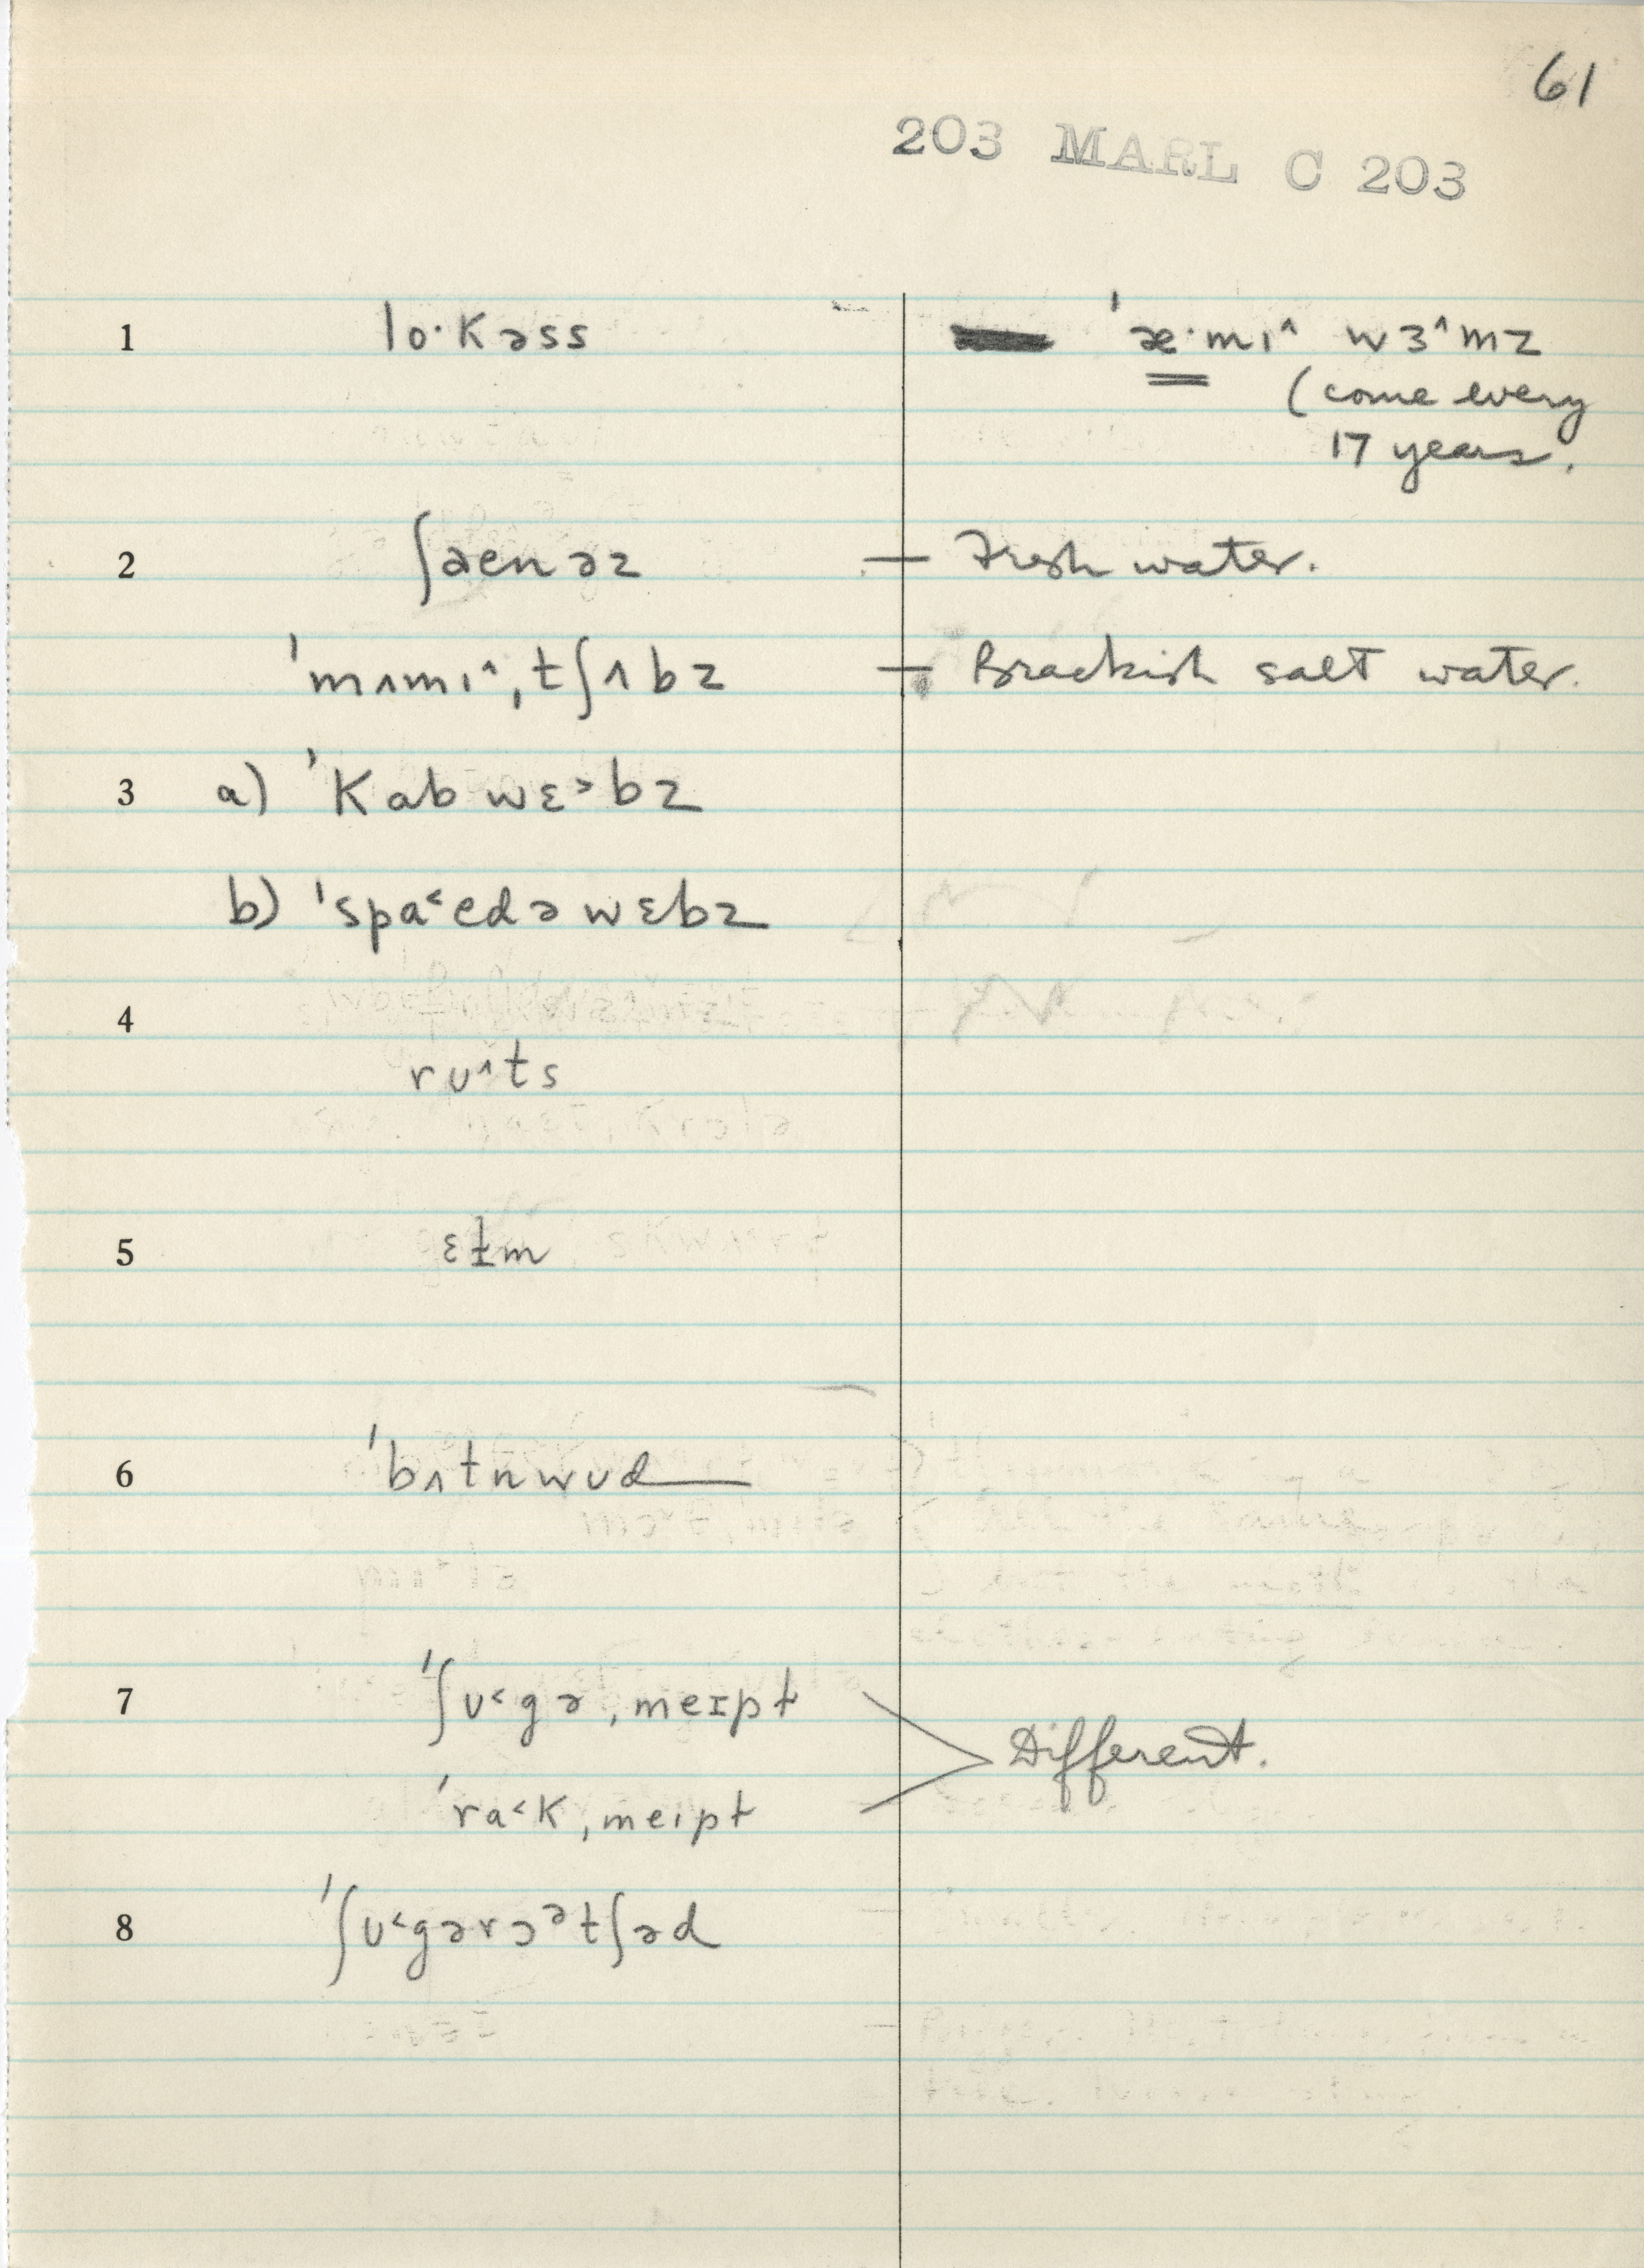 61
203 MARL C 203
1 lo·kəss ˈæ·mɪ^ wɜ^mz
(come every
17 years.
2 ʃaenəz — Fresh water.
ˈmʌmɪ^ˌtʃʌbz — Brackish salt water.
3 a) ˈkabwɛ>bz
b) ˈspa<edəwɛbz
4
rʊ^ts
5 ɛɫm
6 ˈbʌtnwʊd
7 ˈʃʊ<gəˌmeɪpɫ
Different.
ˈra<kˌmeɪpɫ
8 ˈʃʊ<gərɔᵊtʃəd